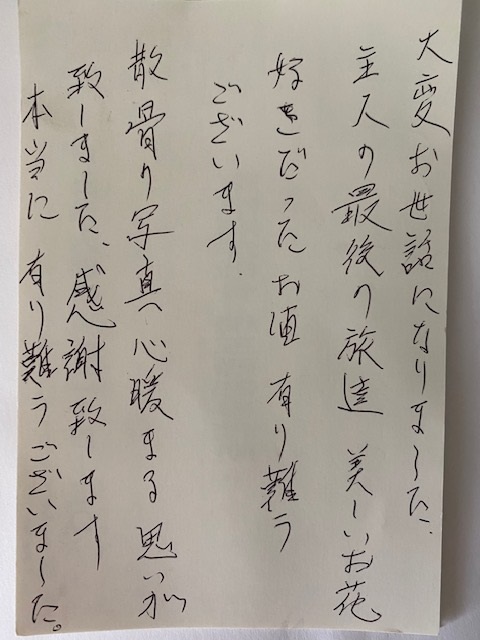 大変お世話になりました.
主人の最後の旅達 美しいお花
好きだったお酒 有り難う
ございます.
散骨り写真 心暖まる思いが
致しました、感謝致します
本当に 有り難うございました。